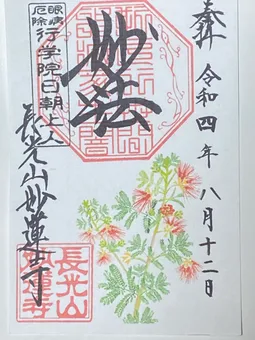 奉拝
令和四年八月十二日
妙法
眼病
厄除
行学院日朝上人
長光山妙蓮寺
長光山
妙蓮寺